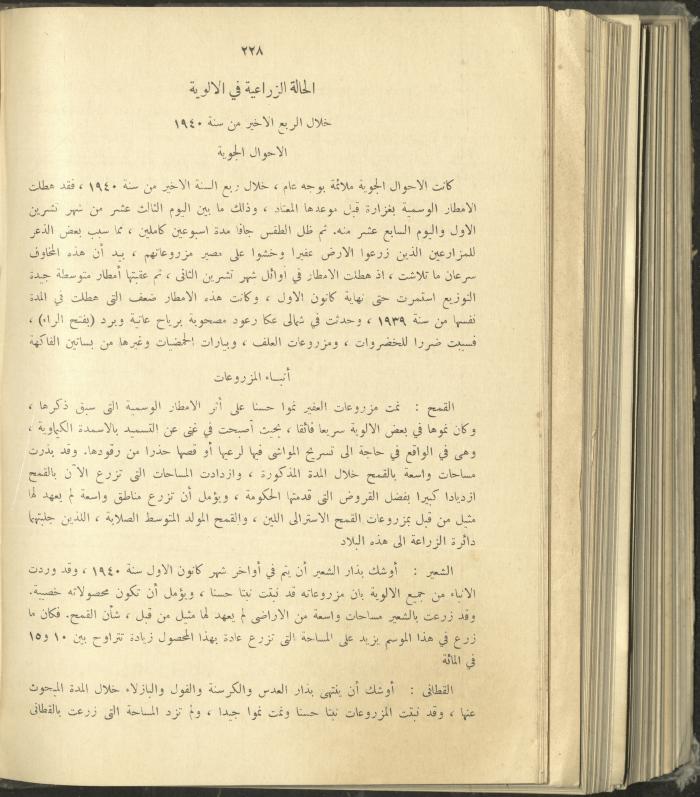 ٢٢٨
الحالة الزراعية في الالوية
خلال الربع الاخير من سنة ١٩٤٠
الاحوال الجوية
كانت الاحوال الجوية ملائمة بوجه عام ، خلال ربع السنة الاخير من سنة ١٩٤٠ ، فقد هطلت
الامطار الوسمية بغزارة قبل موعدها المعتاد ، وذلك ما بين اليوم الثالث عشر من شهر تشرين
الاول واليوم السابع عشر منه. ثم ظل الطقس جافا مدة اسبوعين كاملين ، مما سبب بعض الذعر
للمزارعين الذين زرعوا الارض عفيرا وخشوا على مصير مزروعاتهم ، بيد أن هذه المخاوف
سرعان ما تلاشت ، اذ هطلت الامطار في أوائل شهر تشرين الثانى ، ثم عقبتها أمطار متوسطة جيدة
التوزيع استمرت حتى نهاية كانون الاول ، وكانت هذه الامطار ضعف التى هطلت في المدة
نفسها من سنة ١٩٣٩ ، وحدثت في شمالى عكا رعود مصحوبة برياح عاتية وبرد (بفتح الراء) ،
فسببت ضررا للخضروات ، ومزروعات العلف ، وبيارات الحمضيات وغيرها من بساتين الفاكهة
أنبـاء المزروعات
القمح : نمت مزروعات العفير نموا حسنا على أثر الامطار الوسمية التى سبق ذكرها ،
وكان نموها في بعض الالوية سريعا فائقا ، بحيث أصبحت في غنى عن التسميد بالاسمدة الكيماوية ،
وهى في الواقع في حاجة الى تسريح المواشى فيها لرعيها أو قصها حذرا من رقودها. وقد بذرت
مساحات واسعة بالقمح خلال المدة المذكورة ، وازدادت المساحات التى تزرع الآن بالقمح
ازديادا كبيرا بفضل القروض التى قدمتها الحكومة ، ويؤمل أن تزرع مناطق واسعة لم يعهد لها
مثيل من قبل بمزروعات القمح الاسترالى اللين ، والقمح المولد المتوسط الصلابة ، اللذين جلبتهما
دائرة الزراعة الى هذه البلاد
الشعير : أوشك بذار الشعير أن يتم في أواخر شهر كانون الاول سنة ١٩٤٠ ، وقد وردت
الانباء من جميع الالوية بان مزروعاته قد نبتت نبتا حسنا ، ويؤمل أن تكون محصولاته خصبة.
وقد زرعت بالشعير مساحات واسعة من الاراضى لم يعهد لها مثيل من قبل ، شأن القمح. فكان ما
زرع في هذا الموسم يزيد على المساحة التى تزرع عادة بهذا المحصول زيادة تتراوح بين ١٠ و١٥
في المائة
القطانى : أوشك أن ينتهى بذار العدس والكرسنة والفول والبازلاء خلال المدة المبحوث
عنها ، وقد نبتت المزروعات نبتا حسنا ونمت نموا جيدا ، ولم تزد المساحة التى زرعت بالقطانى